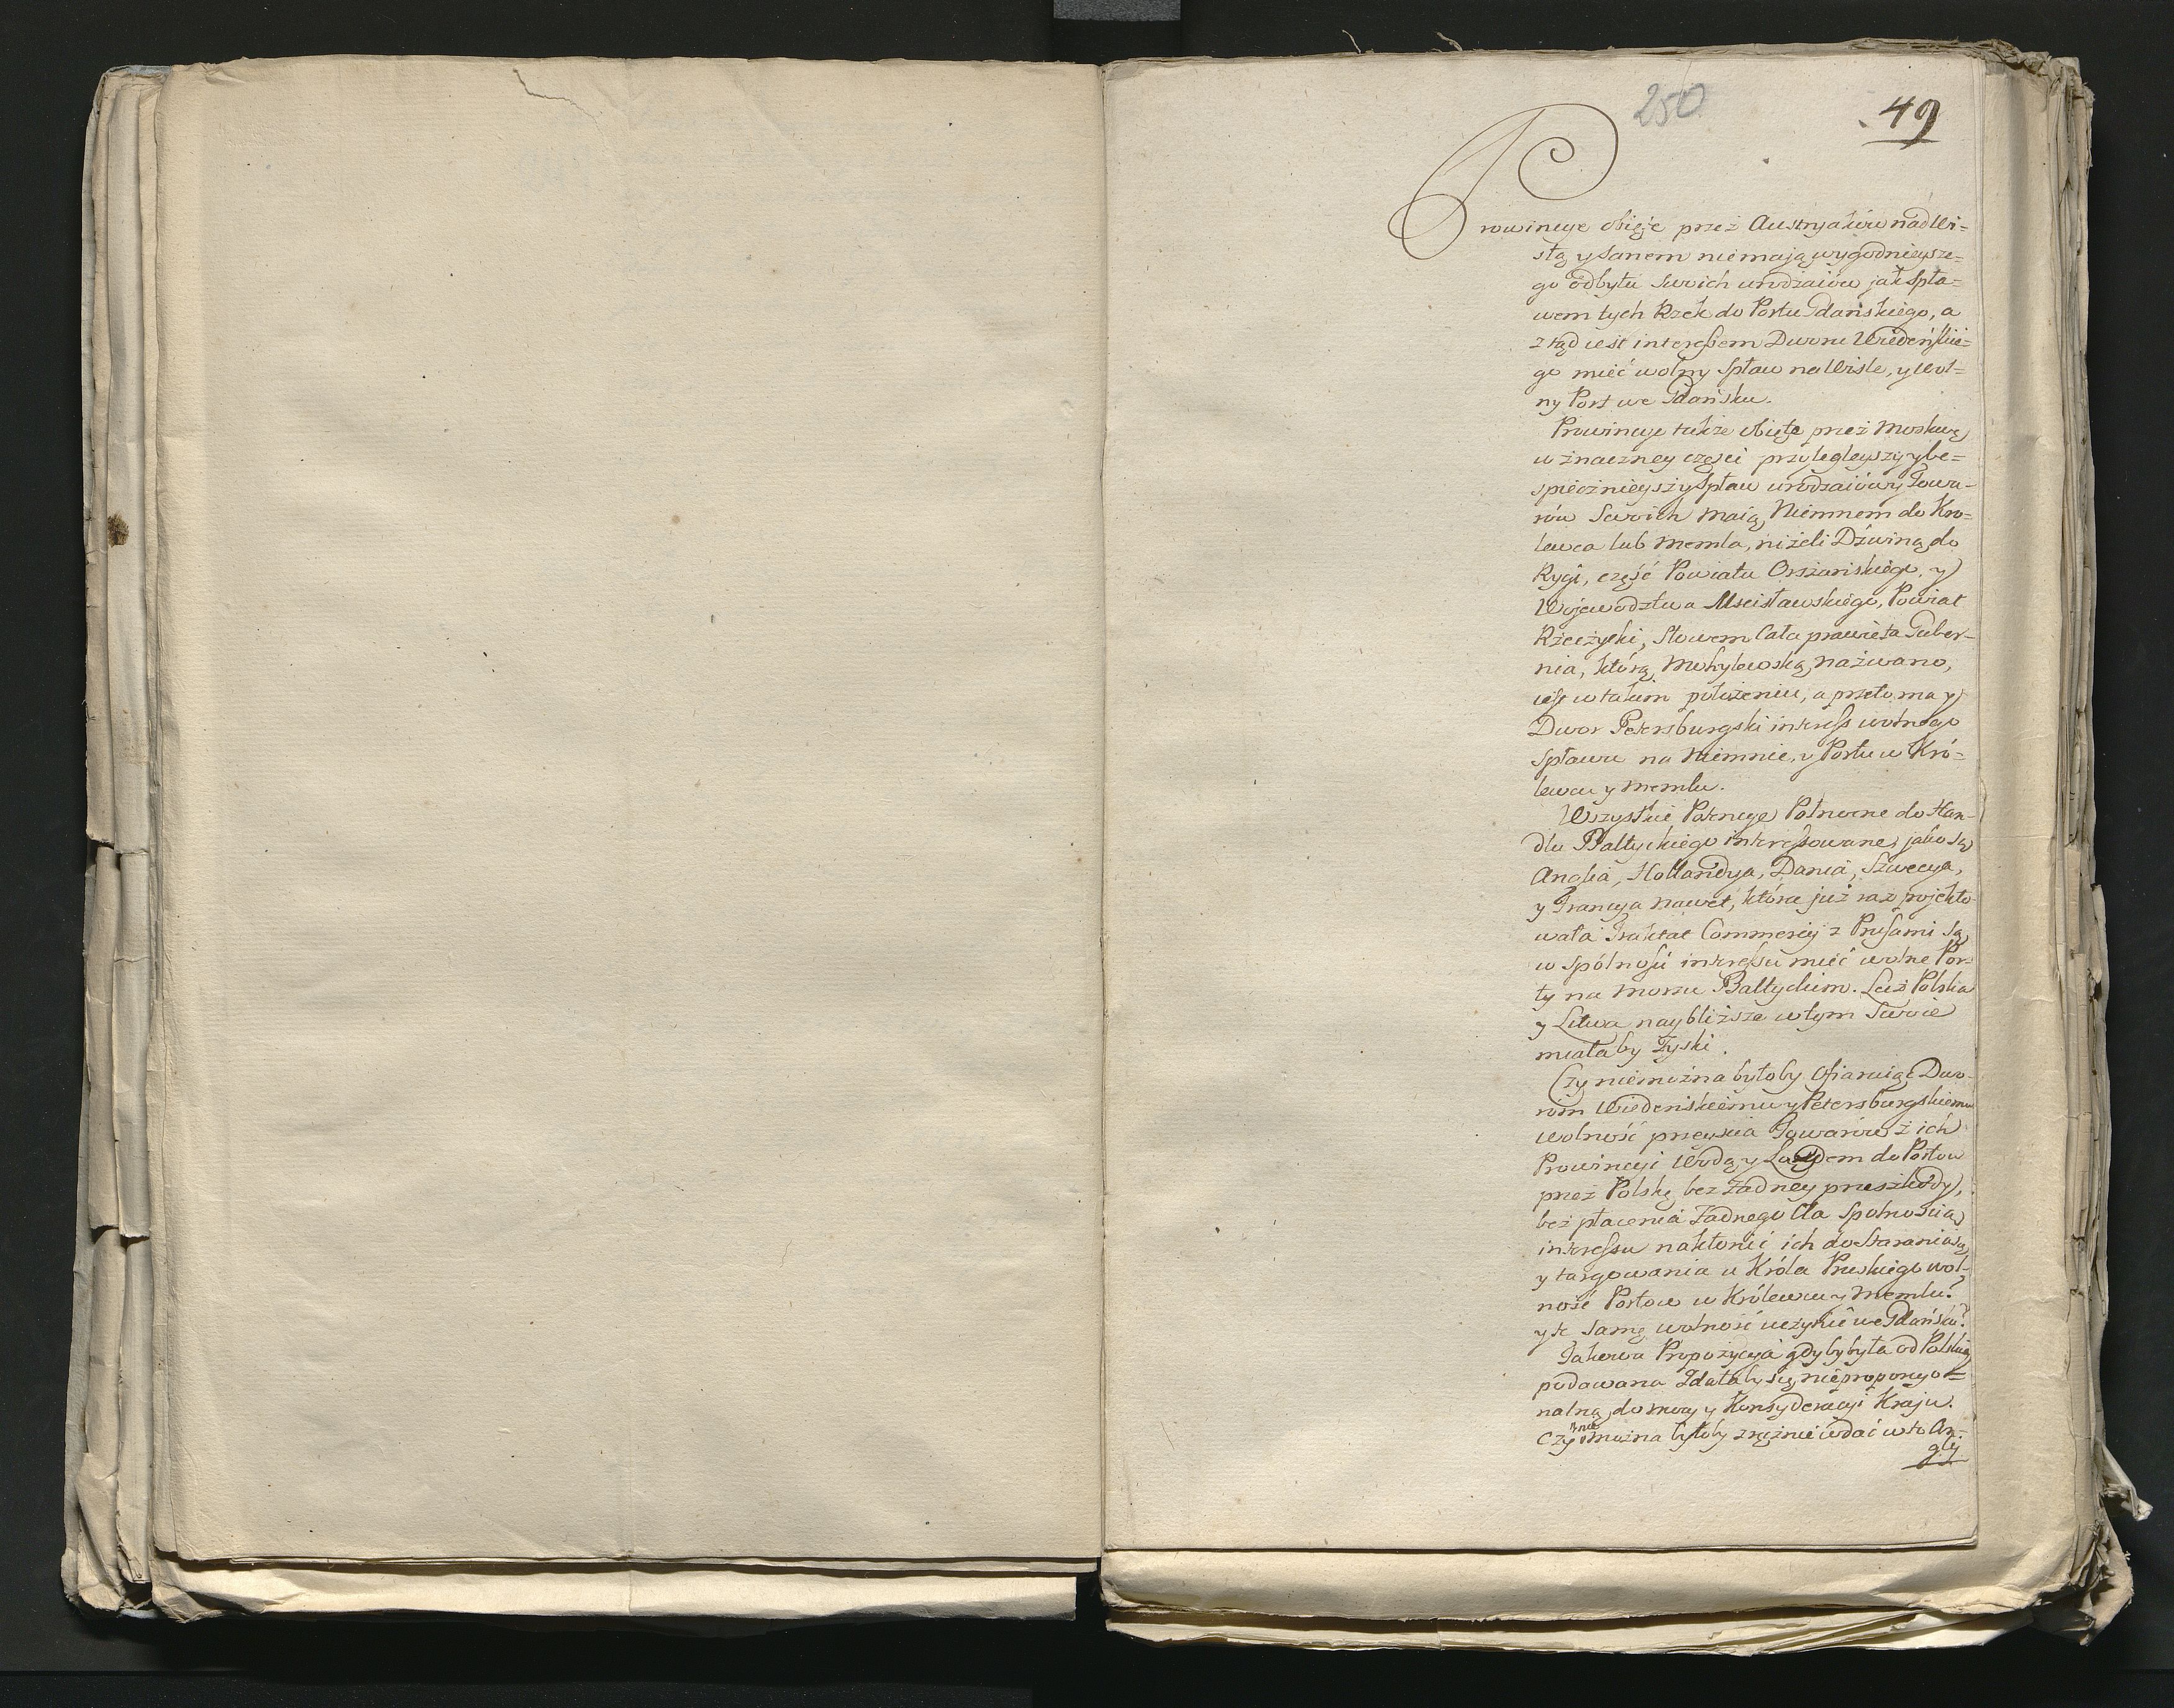 250
49
Prowincye obięte przez Austryaków nad Wi=
słą y Sanem nie mają wygodnieysze=
go odbytu swoich urodzaiów jak spła=
wem tych Rzek do Portu Gdańskiego, a
ztąd iest interessem Dworu Wiedeńskie=
go mieć wolny Spław na Wiśle, y wol=
ny Port we Gdańsku.
Prowincye także obięte przez Moskwę
w znaczney części przylegleyszy y be=
spiecznieyszy Spław urodzaiów y Towa=
rów Swoich maią Niemnem do Kró=
lewca lub Memla, niżeli Dźwiną do
Rygi, część Powiatu Orszańskiego, y
Wojewodztwa Mscisławskiego, Powiat
Rzeczycki, Słowem Cała prawie ta Guber=
nia, którą Mohylewską nazwano,
iest w takim położeniu, a przeto ma y
Dwor Petersburgski interess wolnego
Spławu na Niemnie, y Portu w Kró=
lewcu y Memlu.
Wszystkie Potencye Połnocne do Han=
dlu Baltyckiego interessowane, jako są
Anglia, Hollandya, Dania, Szwecya,
y Francya nawet, która już raz projekto=
wała Traktat Commercij z Prusami są
w spólności interessu mieć wolne Por=
ty na Morzu Baltyckim. Lecz Polska
y Litwa naybliższe w tym Swoie
miałaby Zyski.
Czy nie można byłoby Ofiaruiąc Dwo=
rom Wiedenskiemu y Petersburgskiemu
wolność przeyscia Towarów z ich
Prowincyi Wodą y Lądem do Portow
przez Polskę bez żadney przeszkody,
bez płacenia Żadnego Cła Spolnością
interessu nakłonić ich do Starania się
y targowania u Króla Pruskiego wol=
ność Portow w Królewcu y Memlu?
y tę samę wolność uczynić we Gdańsku?
Takowa Propozycya gdyby była od Polski
podawana Zdałaby się nieproporcyo=
nalną do mocy y Konsyderacyi Kraju.
Czy nie można byłoby zręcznie wdać w to An=
glÿ